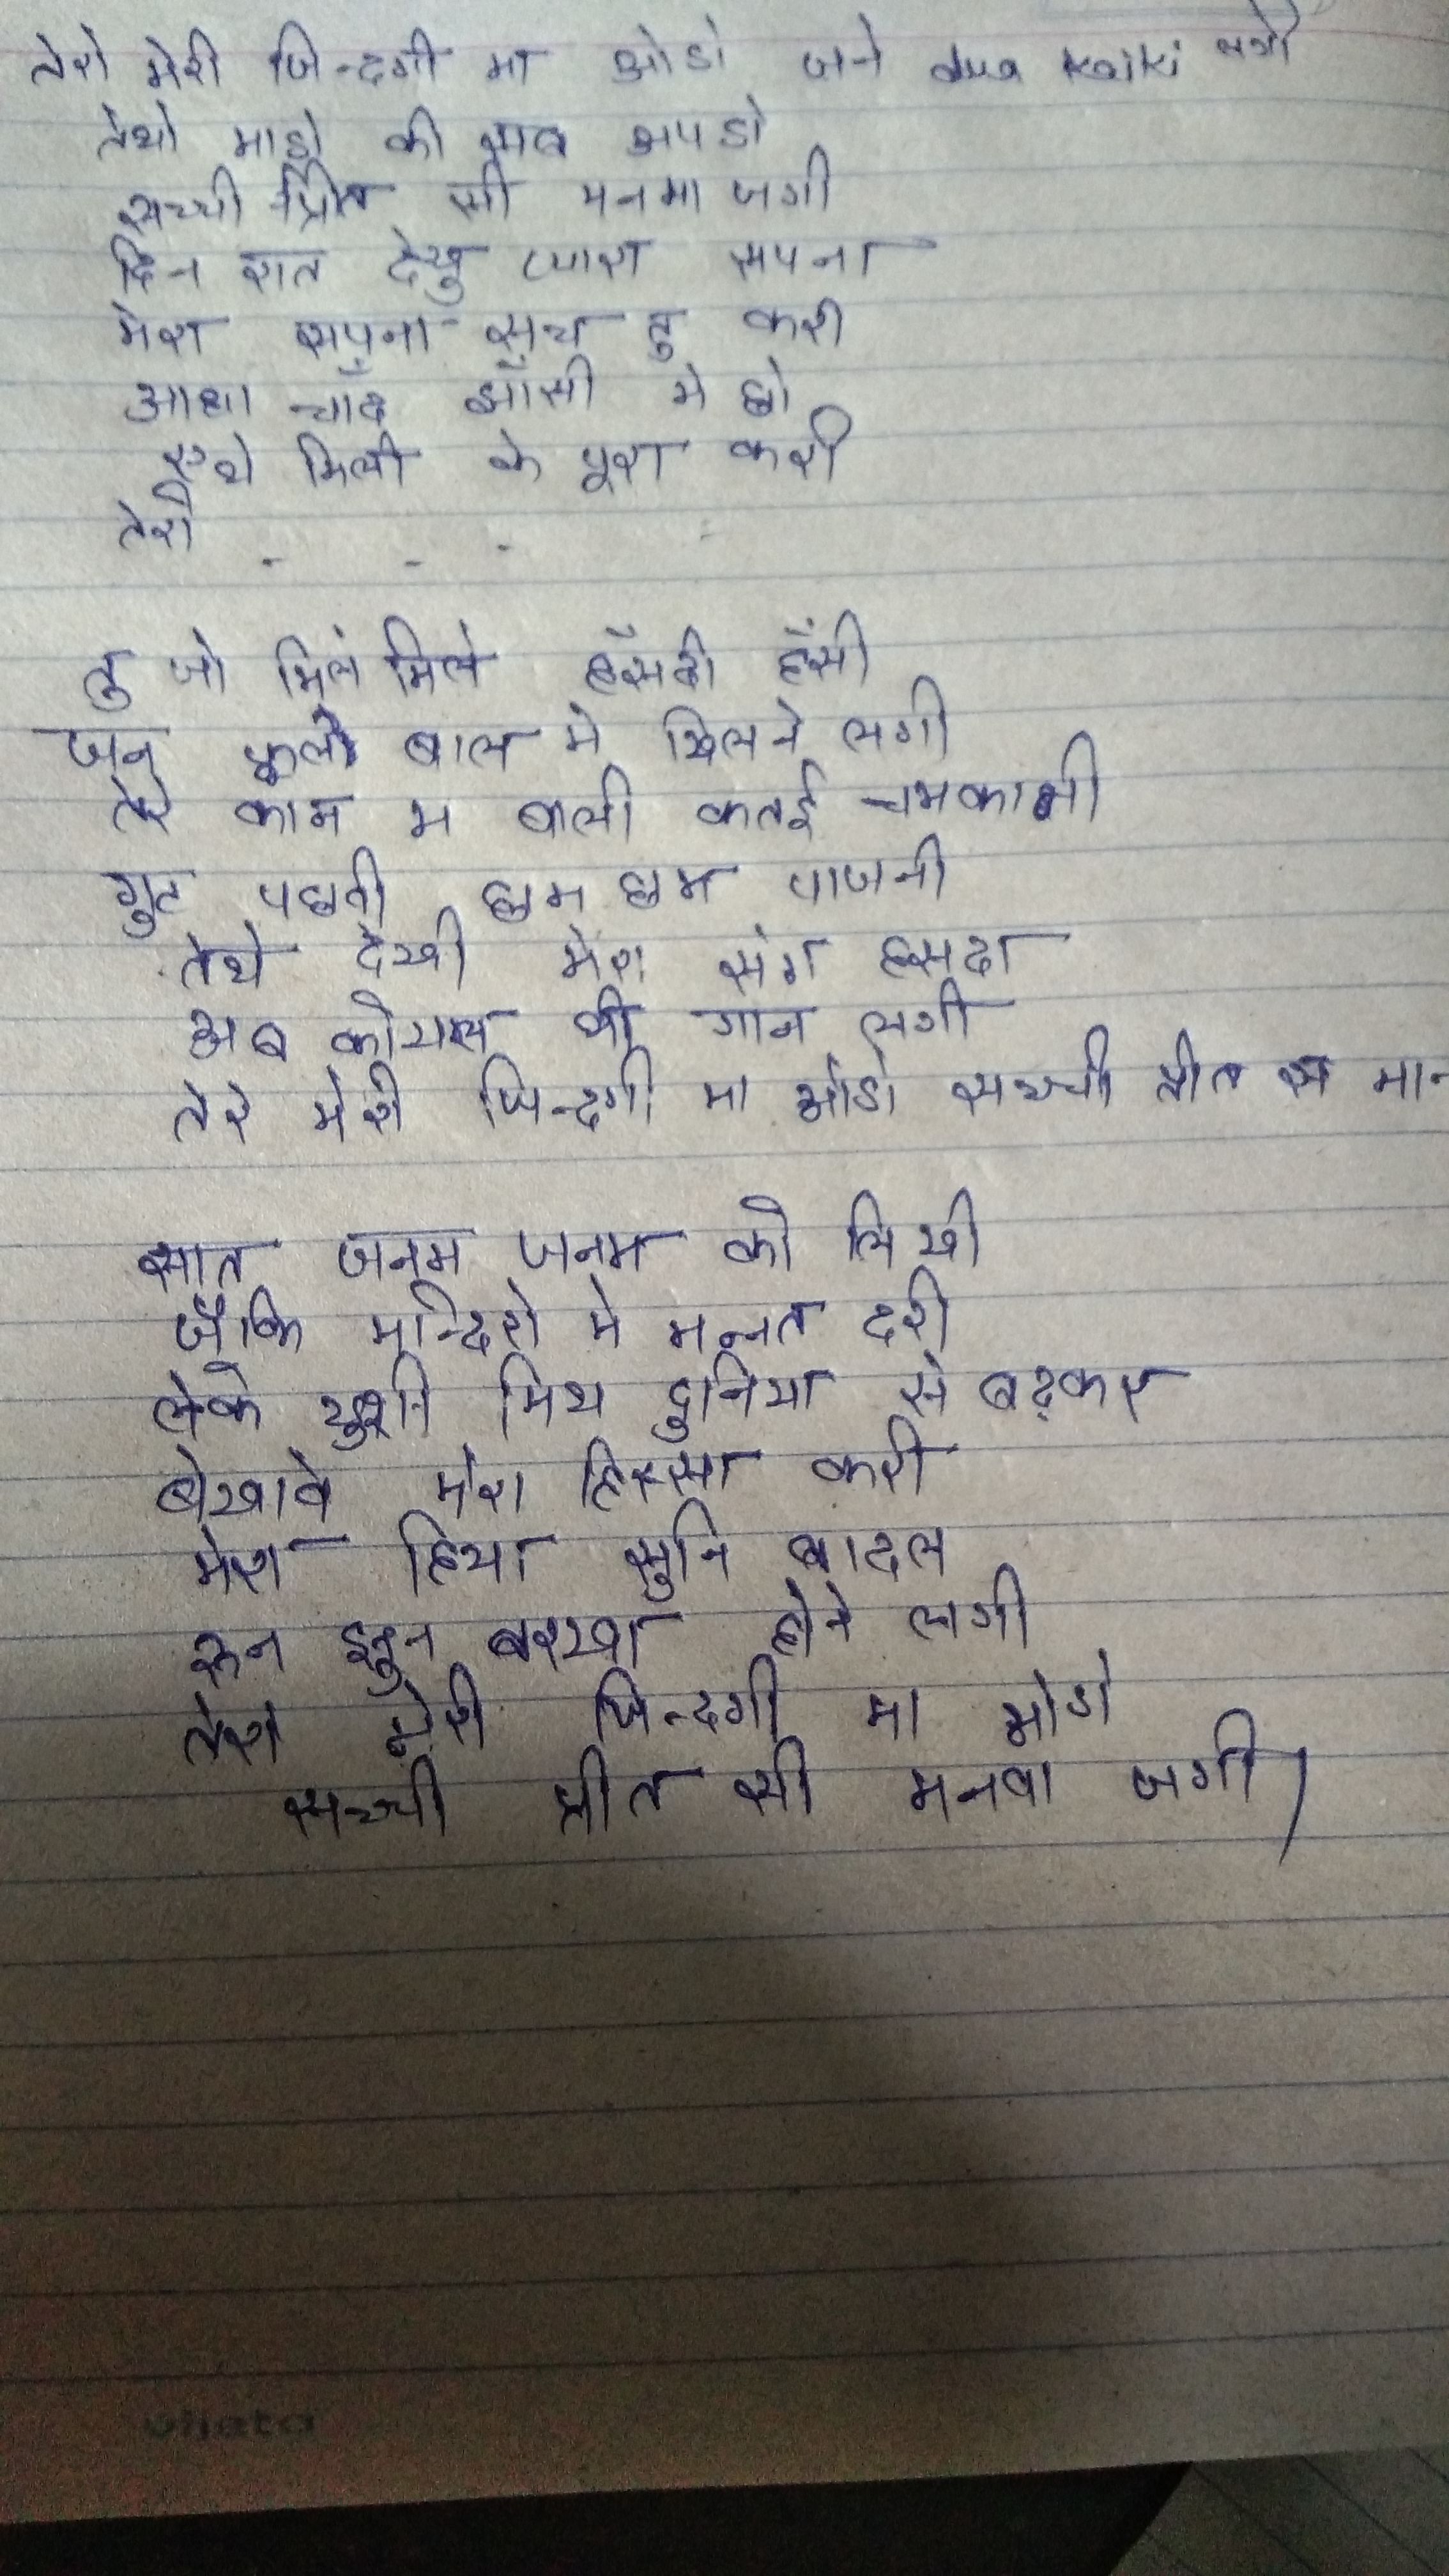 तेरो मेरी जिन्दगी मा ओडो जने dua kaiki लगी
तेथो माडो की सब अपडो
सच्ची प्रित सी मनमा जगी
दिन रात देखु प्यारा सपना
मेरा सपना सच तु करी
आधा चाँद आँसी मे छो
तथे मिली के पूरा करी
तेरो - - - -
तु जो मिले मिले हँसदी हँसी
जन फुलो बाल मे खिलने लगी
तेरे कान म बाली कतई चमकाली
गुट पछती छम छम पाजनी
तेथे देखी मेरा संग हसदा
अब कोयल भी गान लगी
तेरे मेरी जिन्दगी मा ओडो सच्ची प्रीत स मान
सात जनम जनम को लिखी
जैकि मन्दिरो मे मन्नत दरी
लेके खुशी मिथ दुनिया से बढ़कर
मेरा हिस्सा करी
मेरा हिया सुनि बादल
रून झुन बरखा होने लगी
तेरा मेरी जिन्दगी मा ओडो
सच्ची प्रीत सी मनवा जगी।